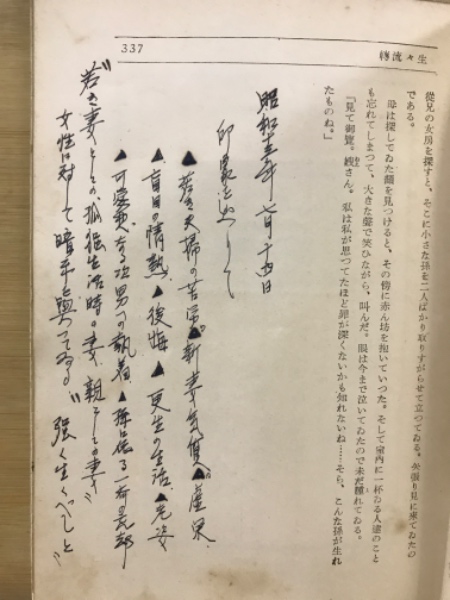 337
生々流轉
從兄の女房を探すと、そこに小さな孫を二人ばかり取りすがらせて立つてゐる。矢張り見に來てゐたの
である。
母は探してゐた顔を見つけると、その傍に赤ん坊を抱いていつた。そして室内に一杯ゐる人達のこと
も忘れてしまつて、大きな聲で笑ひながら、叫んだ。眼は今まで泣いてゐたので未だ腫れてゐる。
『見て御覽。綾さん。私は私が思つてたほど罪が深くないかも知れないね……そら、こんな孫が生れ
たものね。』
昭和十五年七月十四日
印象を辿りて
▲若き夫婦の苦店▲新妻気質▲虚栄
▲盲目の情熱▲後悔▲更生の生活、老姿
▲可愛想なる次男への執着、▲孫に傳る
"若き妻としての孤獨生活時の妻、親としての妻"
女性に対して暗示を與へてゐる" 強く生くべしと"